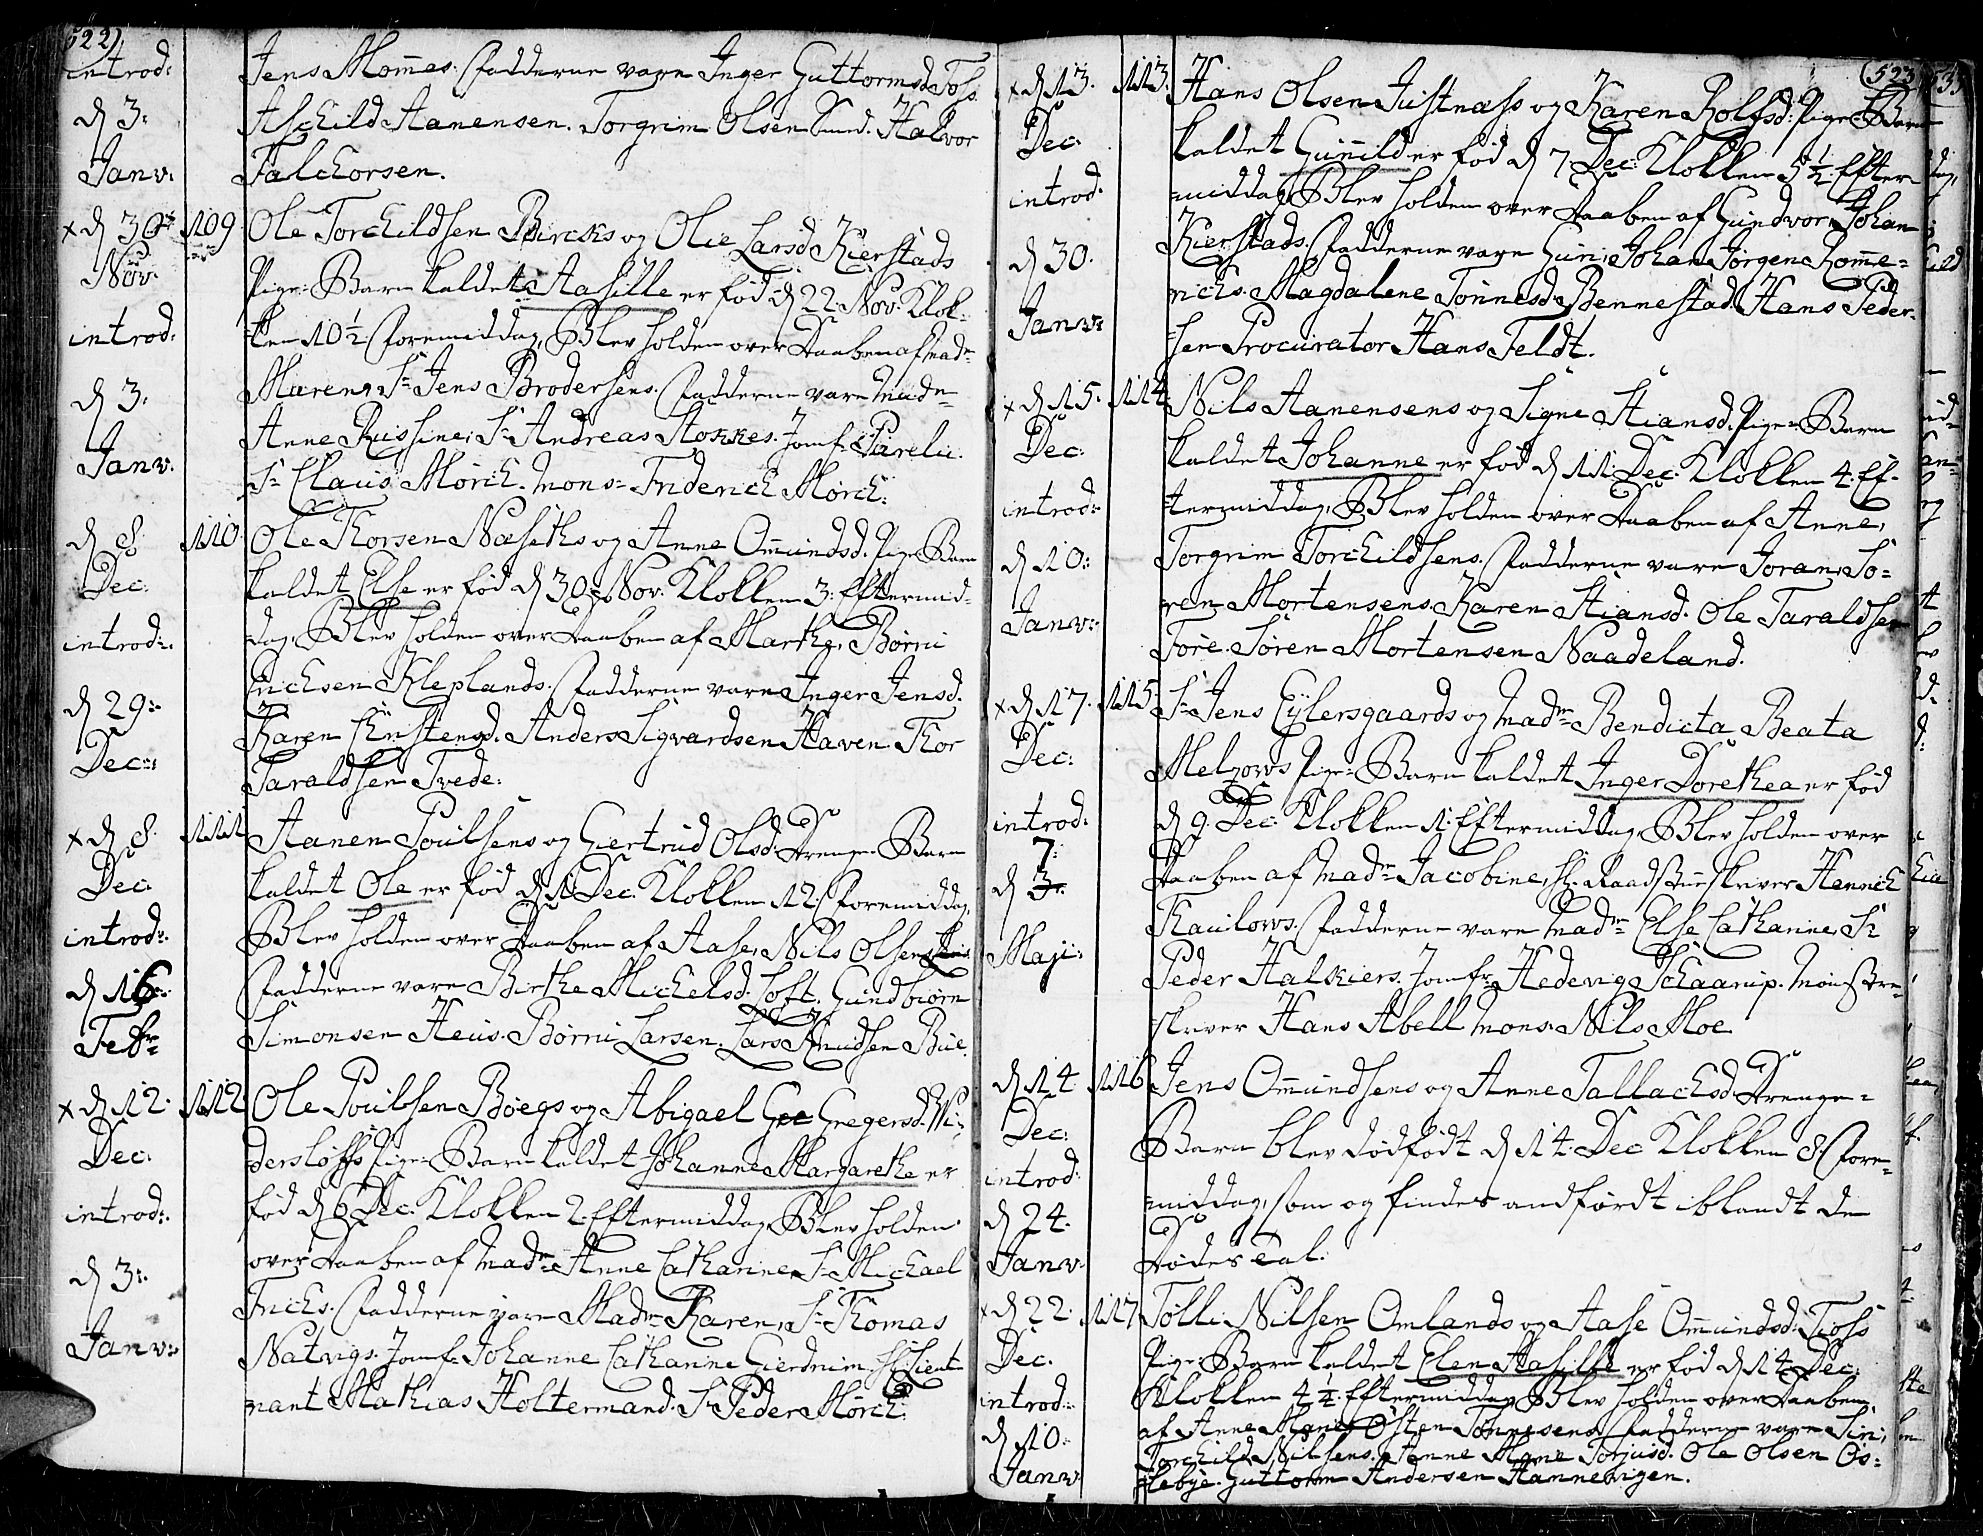 522)
introd:
d 3:
Janv:
Jens Mommes. Fadderne vare Inger Guttormsd. Foss.
Aschild Aanensen. Torgrim Olsen Sund. Halvor
Falchorsen.
x d 30te
Nov:
introd:
d 3.
Janv.
109
Ole Torchildsen Bircks og Olie Larsd Kierstads
Pige-Barn kaldet Aasille er fød d 22. Nov. Klok-
ken 10 1/2 Formiddag, Blev holden over Daaben af Madme
Maren, Sr Jens Brodersens. Fadderne vare Madme
Anne Sr Andreas Stokkes. Jomf:
Sr Claus Mørch. Mons: Friderich Mørch:
d 8.
Dec:
introd:
d 29:
Dec:
110.
Ole Thorsen Næseths og Anne Omundsd. Pige-Barn
kaldet Else er fød d 30. Nov: Klokken 3. Eftermid-
dag, Blev holden over Daaben af Marthe, Børni
Erichsen Kleplands. Fadderne vare Inger Jensd.
Karen Christensd. Anders Sigvardsen Haven Thor
Taraldsen Tvede:
x d 8.
Dec:
introd:
d 16:
Febr
111
Aanen Poulsens og Giertrud Olsd. Drenge-Barn
kaldet Ole er fød d 1 Dec. Klokken 12. Formiddag,
Blev holden over Daaben af Aase, Nils Olsens
Fadderne vare Birthe Michelsd. Loft. Gundbiørn
Simonsen Heus. Børni Larsen. Lars Knudsen Bue.
x d 12.
Dec.
introd:
d 3:
Janv:
112
Ole Poulsen Bøegs og Abigael Gre Gregersd. Wi-
dersløffs Pige-Barn kaldet Johanne Margarethe er
fød d 6 Dec. Klokken 2. Eftermiddag, Blev holden
over Daaben af Madme Anne Catharine, Sr Michael
Frichs. Fadderne vare Madme Karen, Sr Thomas
Natvigs. Jomf: Johanne Catharine Hr: Lieute-
nant Mathias Holtermand. Sr Peder Mørch:
(523
x d 13.
Dec:
introd.
d 30.
Janv:
113.
Hans Olsen Justnæss og Karen Rolfsd: Pige-Barn
kaldet Gunnild er fød d 7 Dec: Klokken 5 1/2 Efter-
middag, Blev holden over Daaben af Gundvor, Johan
Kierstads. Fadderne vare Guri, Johan Jørgen Romme-
richs. Magdalene Tønnesd. Bennestad. Hans Peder-
sen Procurator Hans Feldt.
x d 15.
Dec:
introd:
d 10:
Janv:
114.
Nils Aanensens og Signe Stiansd. Pige-Barn
kaldet Johanne er fød d 11. Dec: Klokken 4. Ef-
termiddag, Blev holden over Daaben af Anne,
Torgrim Torchildsens. Fadderne vare Joran, Sø-
ren Mortensens. Karen Stiansd. Ole Taraldsen
Tore. Søren Mortensen Naadeland.
x d 17.
Dec:
introd:
7:
d 3.
Maji:
115
Sr Jens Eylersgaards og Madme Bendicta Beata
Melzows Pige-Barn kaldet Inger Dorethea er fød
d 9. Dec: Klokken 1. Eftermiddag, Blev holden over
Daaben af Madme Jacobine, Hr: Raadstueskriver Henrich
Thaulows. Fadderne vare Madme Else Catharine, Sr
Peder Halskiers. Jomfr Hedevig Schaarup. Mønstre-
skriver Hans Abell Mons: Nils Moe
d 14
Dec:
introd:
d 24.
Janv:
116
Jens Omundsens og Anne Tallachsd. Drenge-
Barn blev dødfødt d 14. Dec Klokken 8. For-
middag, som og findes andførdt iblandt de
Dødes tal.
x d 22.
Dec.
introd:
d 10:
Janv:
117
Tolli Nilsen Omlands og Aase Omundsd. Foss
Pige-Barn kaldet Elen Aasille er fød d 14. Dec:
Klokken 4 1/4. Eftermiddag, Blev holden over Daaben
af Anne Marie, Østen Tønnesens. Fadderne vare Siri,
Torchild Nilsens. Anne Marie Torjusd. Ole Olsen Os-
lebye. Guttorm Andersen Hannevigen.